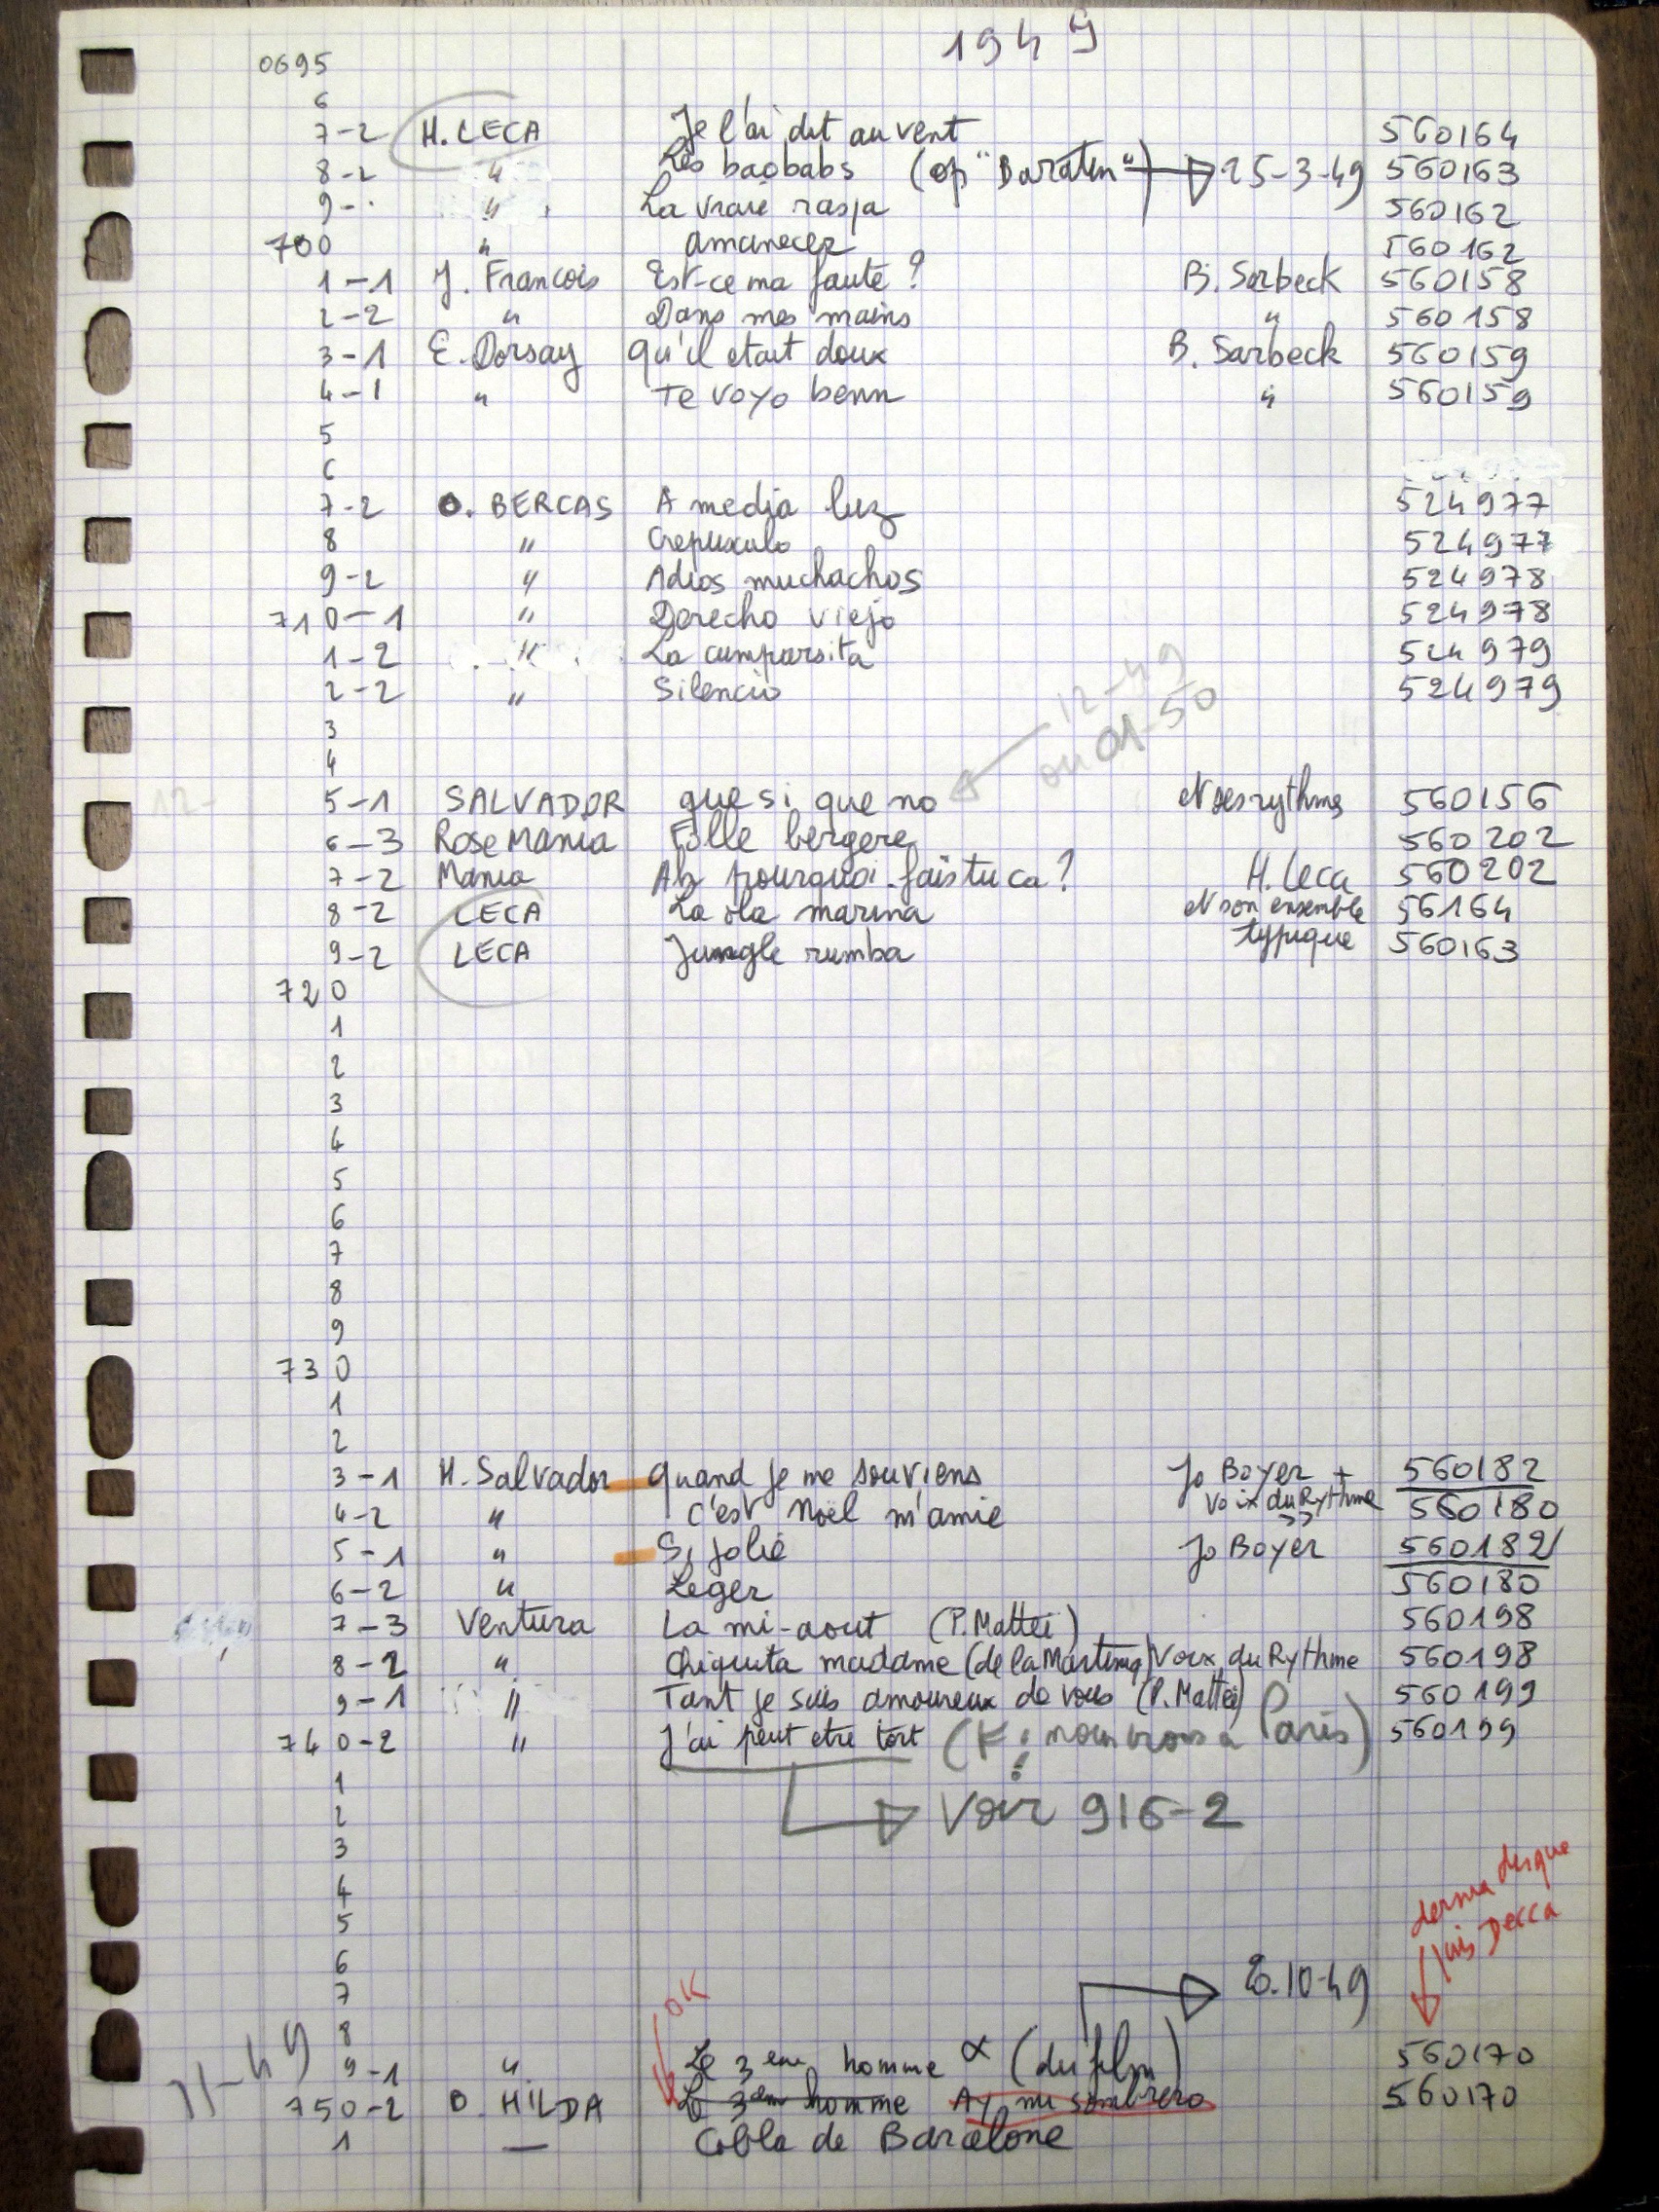 1949
0695
6
7-2 H. LECA Je l'ai dit au vent 560164
8-2 " Les baobabs (op "Baratin") 25-3-49 560163
9- " La vraie raspa 560162
700 " amanecer 560162
1-1 J. Francois Est-ce ma faute ? B. Sarbeck 560158
2-2 " Dans mes mains " 560158
3-1 E. Dorsay Qu'il etait doux B. Sarbeck 560159
4-1 " Te voyo benn " 560159
5
6
7-2 O. BERCAS A media luz 524977
8 " Crepusculo 524977
9-2 " Adios muchachos 524978
710-1 " Derecho viejo 524978
1-2 " La cumparsita 524979
2-2 " Silencio 524979
3
4
12-49
ou 01-50
12-
5-1 SALVADOR que si que no et ses rythmes 560156
6-3 Rose Mania Folle bergere 560202
7-2 Mania Ah pourquoi fais tu ca ? H. Leca 560202
8-2 LECA La ola marina et son ensemble 56164
9-2 LECA Jungle rumba typique 560163
720
1
2
3
4
5
6
7
8
9
730
1
2
3-1 H. Salvador Quand je me souviens Jo Boyer + 560182
Voix du Rythme
4-2 " c'est Noël m'amie " 560180
5-1 " Si jolie Jo Boyer 560182
6-2 " Leger 560180
7-3 Ventura La mi-aout (P. Mattei) 560198
8-2 " Chiquita madame (de la Martiniq) Voix du Rythme 560198
9-1 " Tant je suis amoureux de vous (P. Mattei) 560199
740-2 " J'ai peut etre tort (F: nous irons à Paris) 560199
1
Voir 916-2
2
3
4
5
dernier disque
puis Decca
6
7
20.10-49
OK
8
11-49
9-1 " Le 3eme homme ∝ (du film) 560170
750-2 O. HILDA Le 3eme homme Ay mi sombrero 560170
1 — Cobla de Barcelone